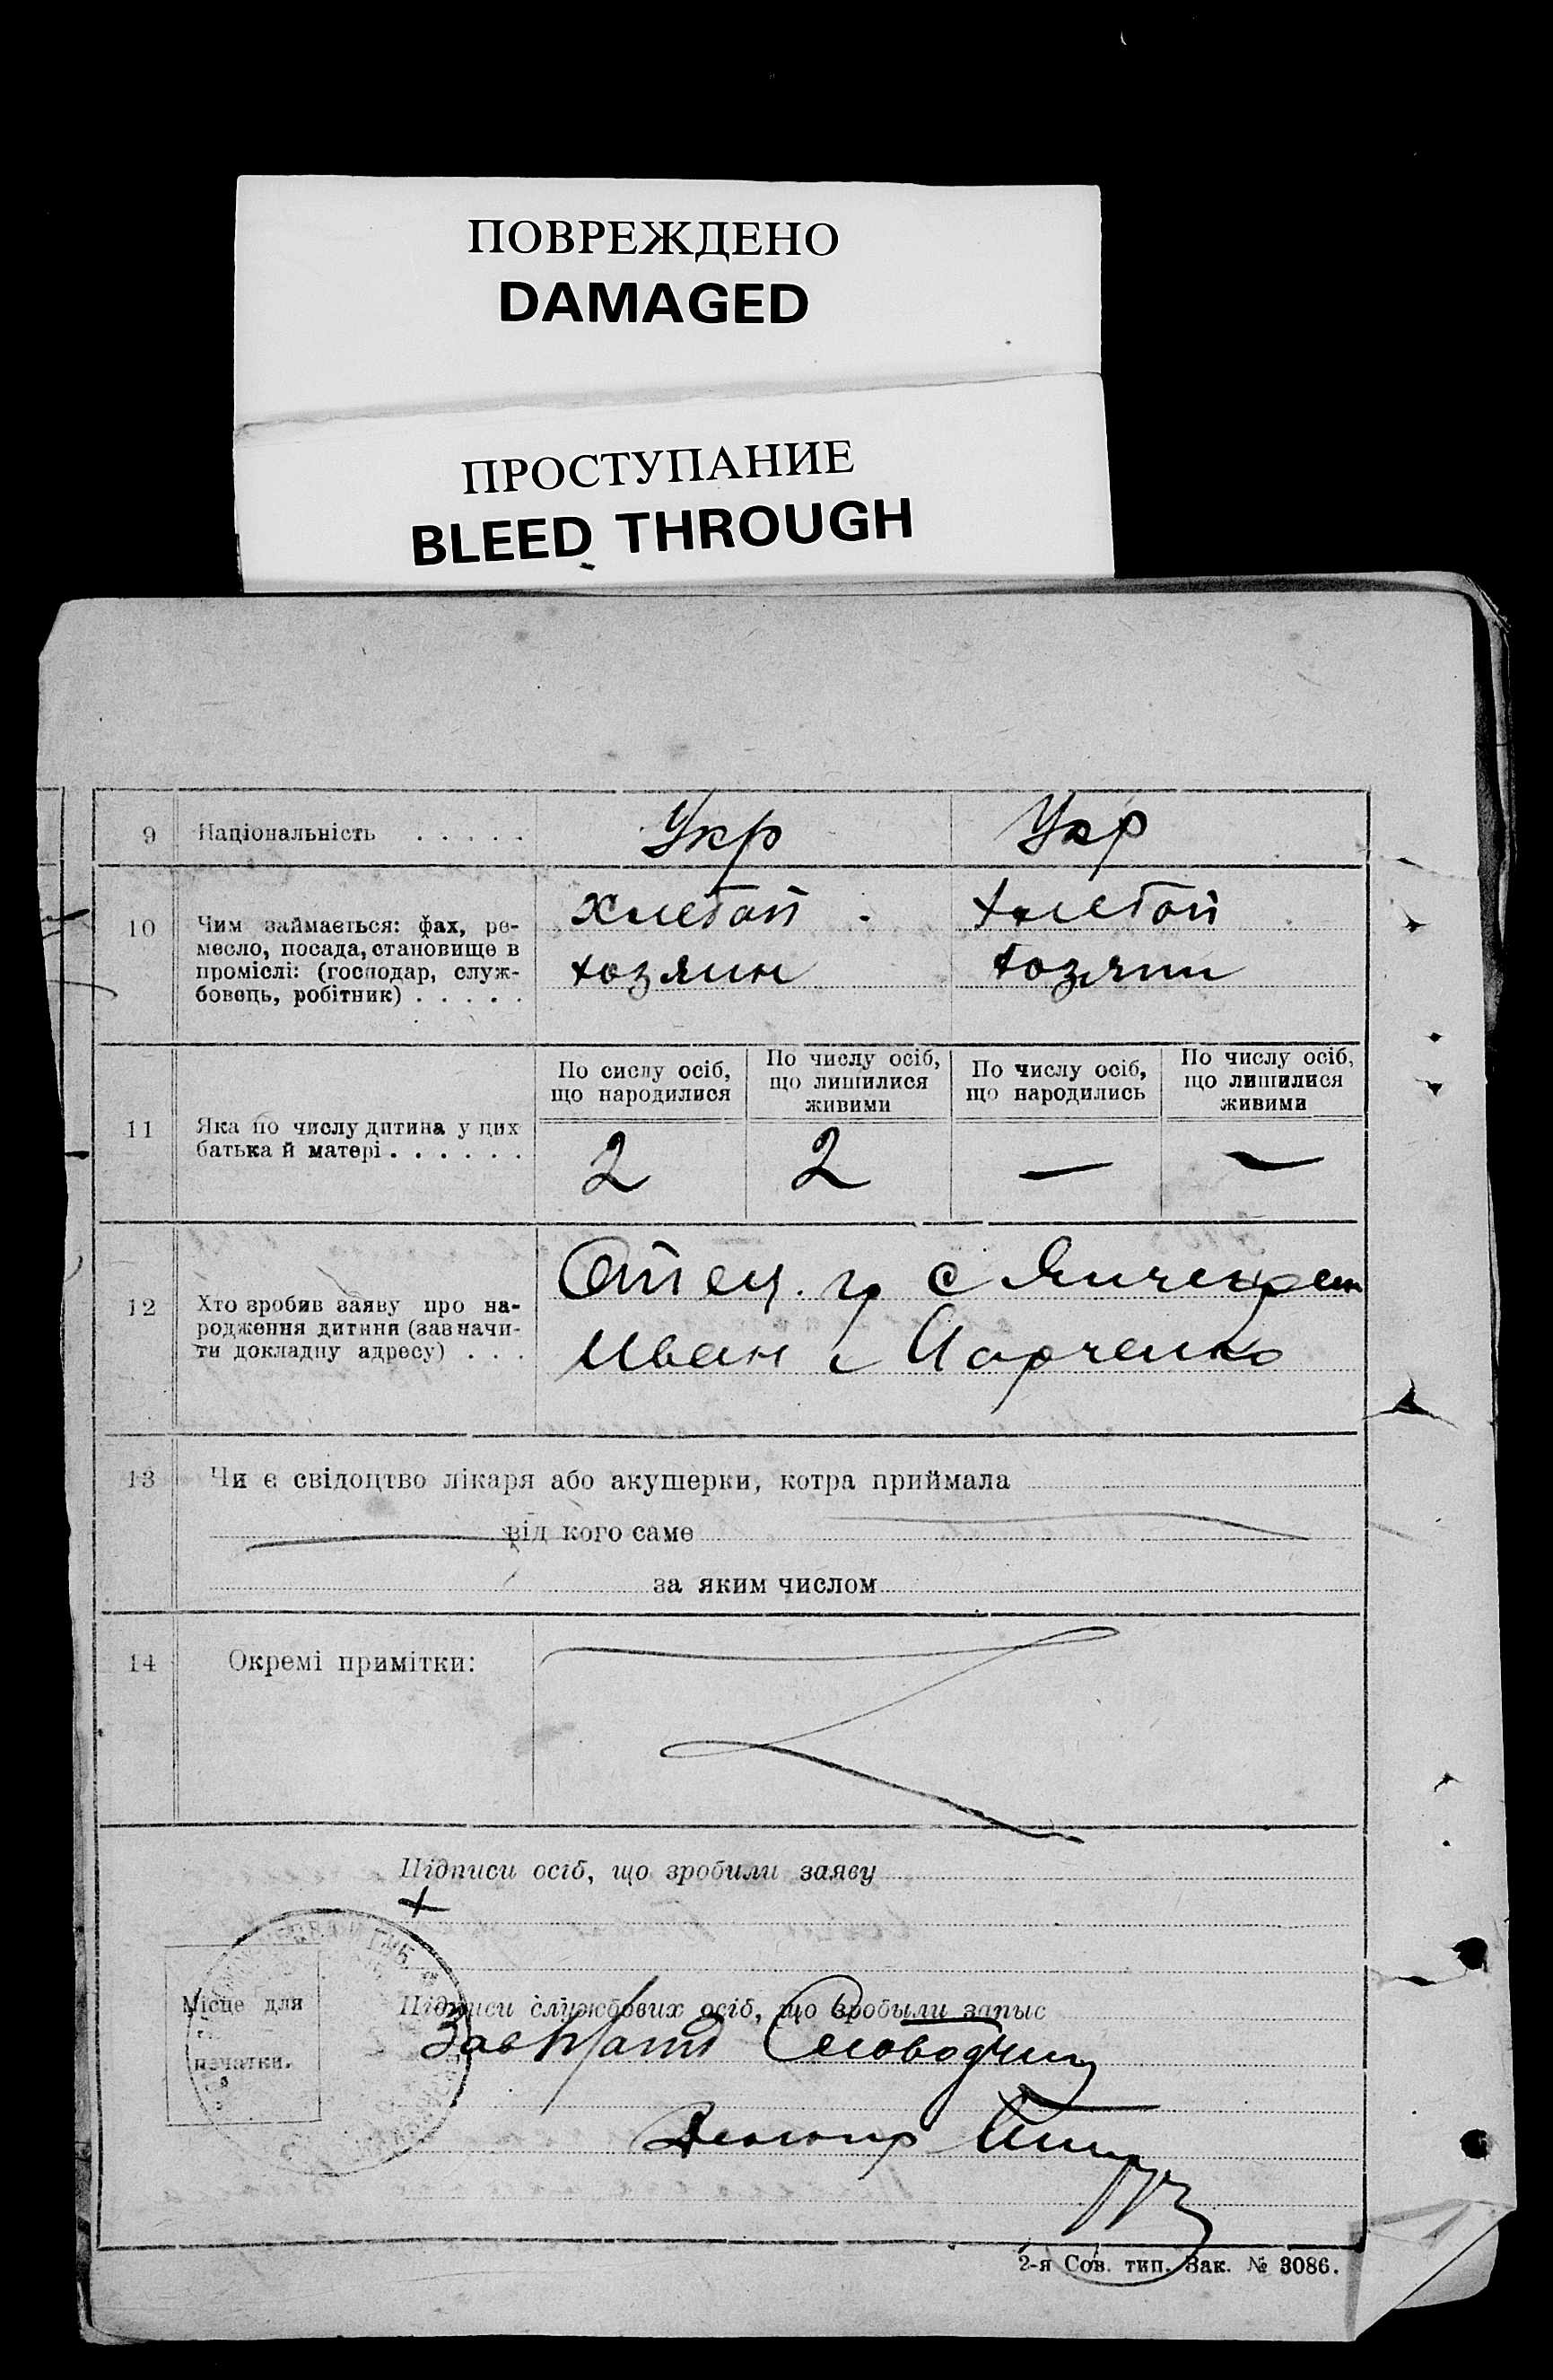 ПОВРЕЖДЕНО
DAMAGED
ПРОСТУПАНИЕ
BLEED THROUGH
9 Національність . . . . . Укр Укр
10 Чим займається: фах, ре-
месло, посада, становище в
проміслі: (господар, служ-
бовець, робітник) . . . . .
хлебоп хлебоп
хозяин хозяин
11 Яка по числу дитина у цих
батька й матері . . . . . .
По сислу осіб,
що народилися
По числу осіб,
що лишилися
живими
По числу осіб,
що народились
По числу осіб,
що лишилися
живими
2 2 — —
12 Хто зробив заяву про на-
родження дитини (зазначи-
ти докладну адресу) . . .
Отец. гр с
Иван
13 Чи є свідоцтво лікаря або акушерки, котра приймала
від кого саме
за яким числом
14 Окремі примітки:
Підписи осіб, що зробили заяву
+
Місце для
печатки.
Підписи службових осіб, що зробыли запыс
2-я Сов. тип. Зак. № 3086.